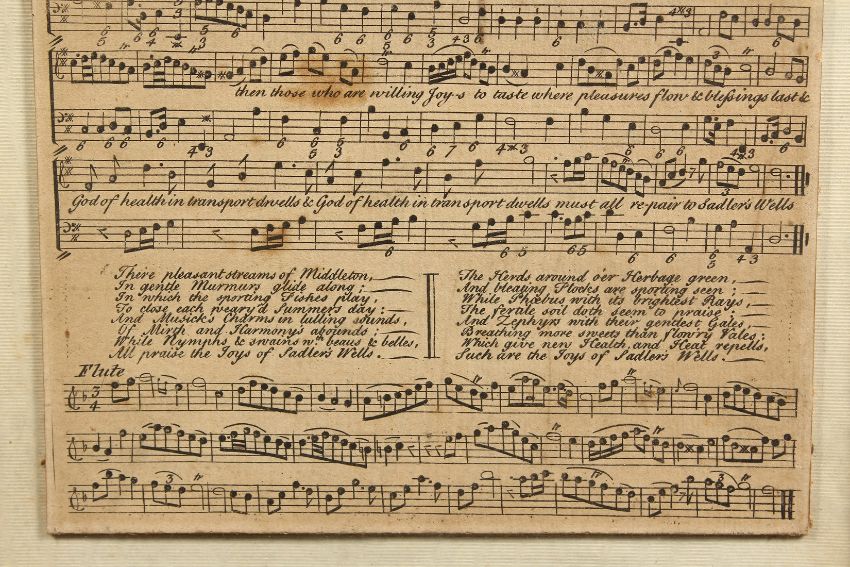 then those who are willing Joy-s to taste where pleasures flow & blessings last &
God of health in transport dwells & God of health in transport dwells must all re-pair to Sadler's Wells
There pleasant streams of Middleton,
In gentle Murmurs glide along;
In which the sporting Fishes play,
To close each weary'd Summer's day;
And Musick's Charms in lulling sounds,
Of Mirth and Harmony abounds
While Nymphs & swains wth beaus & belles,
All praise the Joys of Sadler's Wells.
The Herds around o'er Herbage green,
And bleating Flocks are sporting seen;
While Phœbus with its brightest Rays,
The fertile soil doth seem to praise;
And Zephyrs with their gentlest Gales,
Breathing more sweet than flow'ry Vales;
Which give new Health, and Heat repells,
Such are the Joys of Sadler's Wells.
Flute